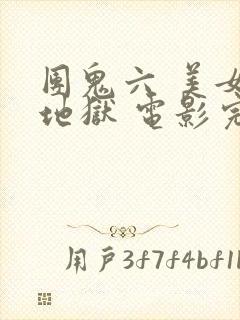 團鬼六 美女
地獄 電影完
用戶3f7f4bf1b